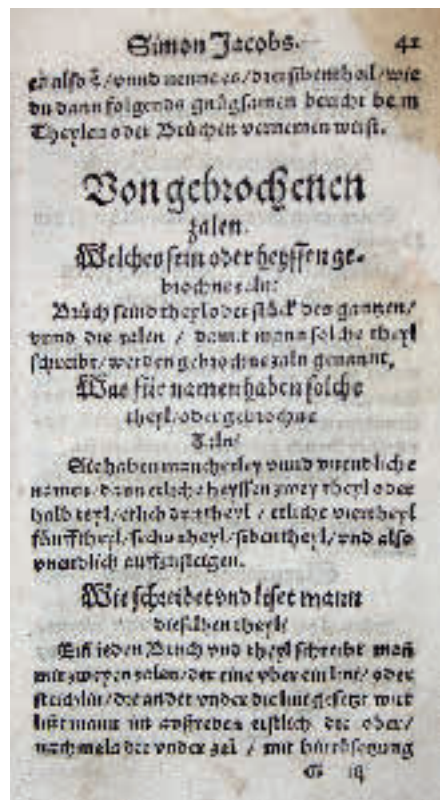 Simon Jacobs. 41
es also /vnnd nenne es/drei sibentheil/wie
du dann folgends gnůgsamen bericht beim
Theylen oder Brüchen vernemen wirst.
Von gebrochenen
zalen.
Welches sein oder heyssen ge-
brochne zaln?
Brüch seind theyl oder stück des gantzen/
vnnd die zalen / damit mann solche theyl
schreibt/werden gebrochne zaln genannt.
Was für namen haben solche
theyl/oder gebrochne
Zaln?
Sie haben mancherley vnnd vnendliche
namen/dann etliche heyssen zwey theyl oder
halb teyl/etlich drittheyl / etliche viertheyl
fünfftheyl/sechstheyl/sibentheyl/vnd also
vnendlich auffzusteigen.
Wie schreibet vnd liset mann
dieselben theyl?
Ein jeden Bruch vnd theyl schreibt mañ
mit zweyen zalen/der eine vber ein lini/ oder
strichlin/die ander vnder die lini gesetzt wirt
list mann im außreden erstlich die ober/
nachmals die vnder zal / mit
G iij